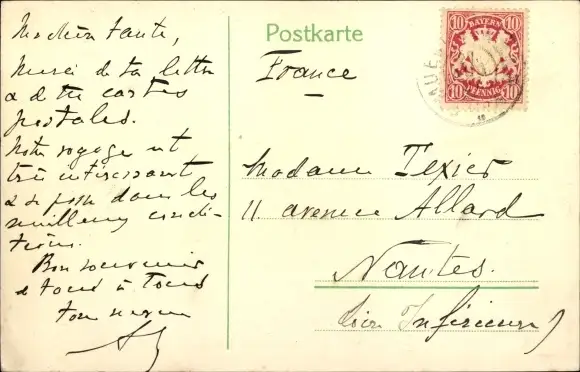 Ma chère tante,
Merci de ta lettre
& de tes cartes
postales.
Notre voyage est
très intéressant
& se passe dans les
meilleures condi-
tions.
Bon souvenir
& tous à tous
ton neveu
Postkarte
France
10 BAYERN 10
10 PFENNIG 10
Madame Texier
11 avenue Allard
Nantes.
(Loire Inférieure)